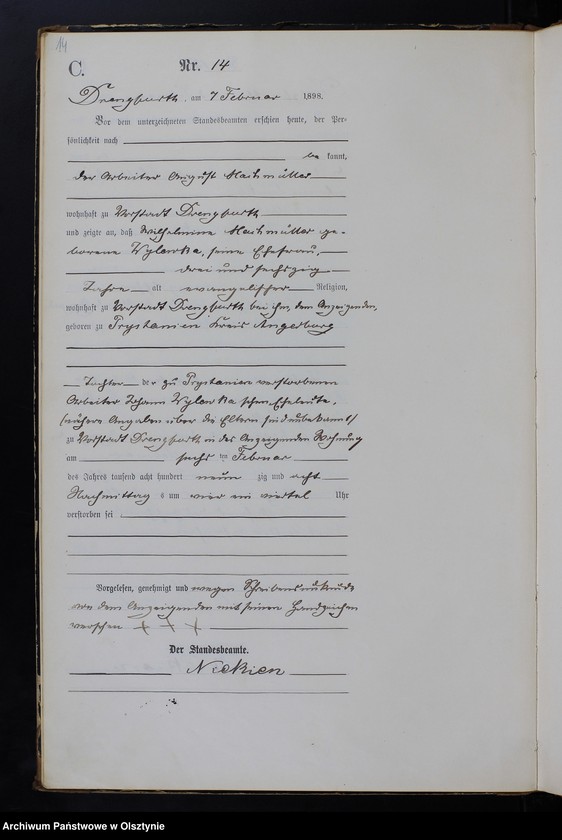 14
C.
Nr. 14
Drengfurth, am 7 Februar 1898.
Vor dem unterzeichneten Standesbeamten erschien heute, der Per-
sönlichkeit nach
be kannt,
der Arbeiter August
wohnhaft zu Vorstadt Drengfurth
und zeigte an, daß Wilhelmine ge-
borene Wylewka, seine Ehefrau,
drei und sechszig
Jahre alt evangelischer Religion,
wohnhaft zu Vorstadt Drengfurth bei ihm, dem Anzeigenden,
geboren zu Prystanien Kreis Angerburg
Tochter der zu Prystanien verstorbenen
Arbeiter Johann Wylewka schen Eheleute,
(nähere Angaben über die Eltern sind unbekannt)
zu Vorstadt Drengfurth in des Anzeigenden Wohnung
am sechs ten Februar
des Jahres tausend acht hundert neun zig und acht
Nachmittag s um vier ein viertel Uhr
verstorben sei
Vorgelesen, genehmigt und wegen Schreibensunkunde
von dem Anzeigenden mit seinen Handzeichen
versehen + + +
Der Standesbeamte.
Archiwum Państwowe w Olsztynie